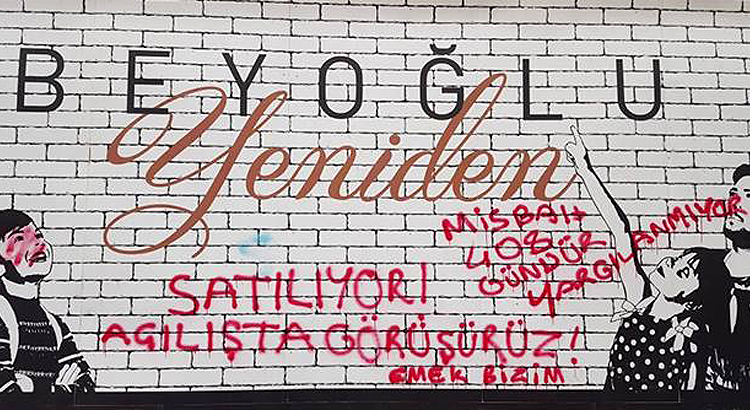 BEYOĞLU
Yeniden
MİSBAH
408
GÜNDÜR
YARGILANMIYOR
SATILIYOR!
AÇILIŞTA GÖRÜŞÜRÜZ!
EMEK BİZİM!